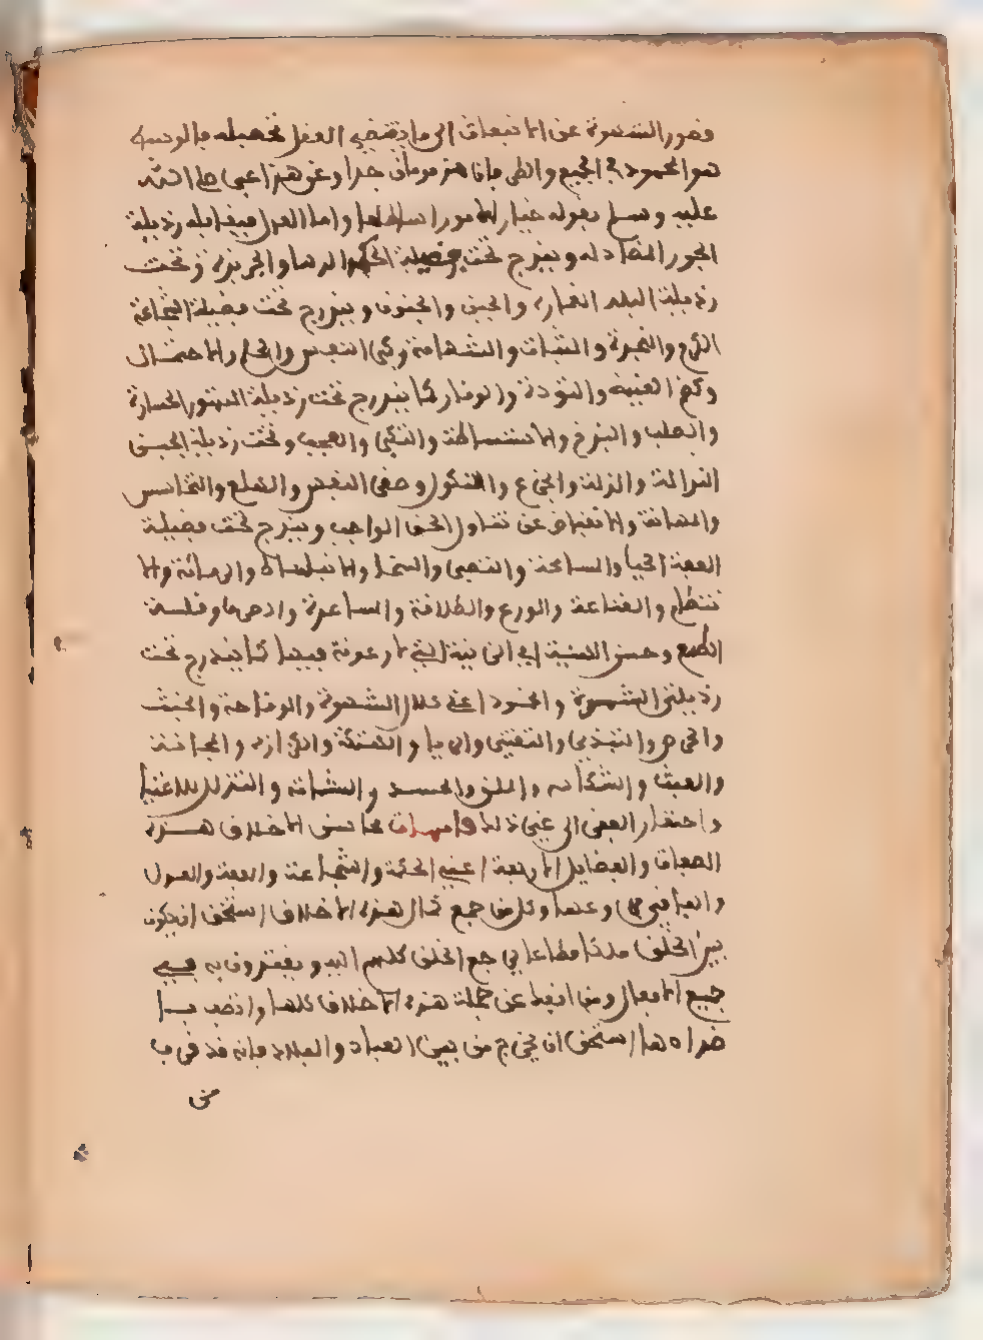 قصور الشهوة عن الانبعاث الى ما يقتضي العقل تحصيله فالوسط
هو المحمود في الجميع والطرفان مذمومان جدا وعن هذا عبر صلى الله
عليه وسلم بقوله خيار الامور اوساطها واما العدل فيقابله رذيلة
الجور المضادله ويندرج تحت فضيلة الحكمة الدها والجربزه وتحت
رذيلة البله الغماره والحمق والجنون ويندرج تحت فضيلة الشجاعة
الكرم والنجدة والثبات والشهامة وكبر النفس والحلم والاحتمال
وكظم الغيظ والتؤدة والوقار كما يندرج تحت رذيلة التهور الجسارة
والصلف والبذخ والاستشاطة والتكبر والعجب وتحت رذيلة الجبن
النذالة والذلة والجزع والنكول وصغر النفس والهلع والتخاسس
والمهانة والانقباض عن تناول الحق الواجب ويندرج تحت فضيلة
العفة الحيا والمسامحة والصبر والسخا والانبساط والدماثة والا
نتظام والقناعة والورع والطلاقة والمساعدة وقلة
الطمع وحسن الهيئة اي الزينة التي لا رعونة فيها كما يندرج تحت
رذيلتي الشهوة والخمود اعني كلال الشهوة والوقاحة والخبث
والحرص والتبذير والتقتير والريا والهتكة والكزازه والمجانة
والعبث والشكاسه والملق والحسد والشماتة والتذلل للاغنيا
واحتقار الفقرا الى غير ذلك فامهات محاسن الاخلاق هذه
الصفات والفضايل الاربعة اعني الحكمة والشجاعة والعفة والعدل
والباقي فروعها وكل من جمع كمال هذه الاخلاق استحق ان يكون
بين الخلق ملكا مطاعا يرجع الخلق كلهم اليه ويقتدون به في
جميع الافعال ومن انفك عن جملة هذه الاخلاق كلها واتصف بـ
ضدادها استحق ان يخرج من بين العباد والبلاد فانه قد قرب
من